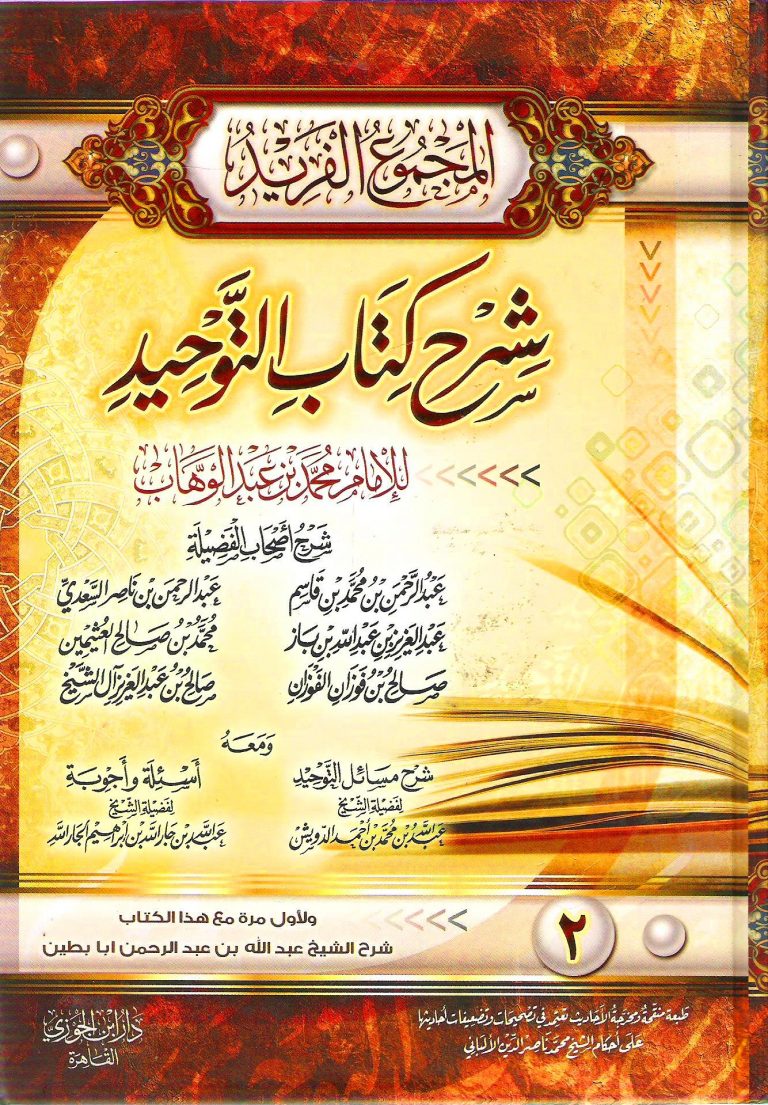 المَجمُوعُ الفَرِيدُ
شَرْح كِتَابِ التَّوْحِيدِ
للإمَام مُحمَّد بْن عَبد الوَهَّاب
شَرْحُ أَصْحَابِ الفَضِيلَة
عَبْدُ الرَّحْمَن بْنُ مُحَمَّد بْنِ قَاسِم عَبد الرحمن بن ناصر السَّعْديّ
عَبد العَزيز بْنِ عَبد اللَّه بْن بَاز مُحمَّد بْن صَالح العُثيمِين
صَالحُ بْنُ فَوْزَان الفَوْزان صَالحُ بْنُ عَبْد العَزيز آل الشَّيْخ
وَمَعَهُ
شَرح مَسَائل التَّوحِيْد أَسْئِلَة وَأَجْوبَة
لِفَضِيلَةِ الشَّيْخ لِفَضِيلَةِ الشَّيْخ
عَبدُ اللَّه بْنُ مُحمَّد بْنِ أَحْمَد الدّويش عَبد اللَّه بْن جَار اللَّه بْن إبْرَاهِيْم الجَار اللَّه
٢
ولأول مرة مع هذا الكتاب
شرح الشيخ عبد الله بن عبد الرحمن ابا بطين
طَبعة منقَّحة ومخرَّجةُ الأحَاديث تَعتَمِد في تَصْحيحَات وتضعِيفات أحَاديثها
عَلى أحكام الشيخ محمَّد ناصر الدّين الألبَاني
دَارُ ابْن الجَوْزي
القَاهِرَة